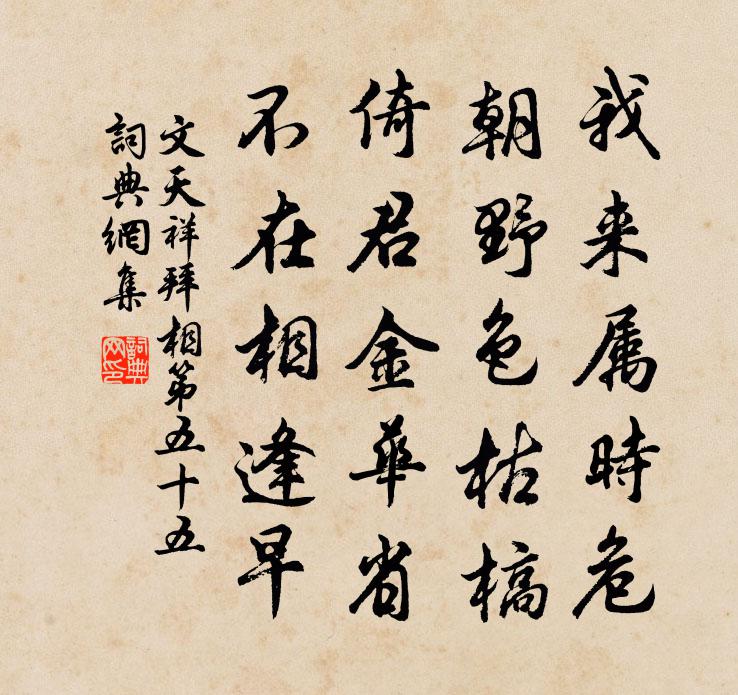 我来属時危
朝野色枯槁
倚君金華省
不在相逢早
文天祥拜相第五十五
詞典網集
詞典
网印